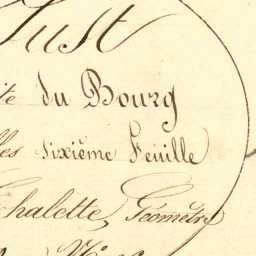 Just
te du Bourg
les sixième Feuille
Chalette, Géomètre